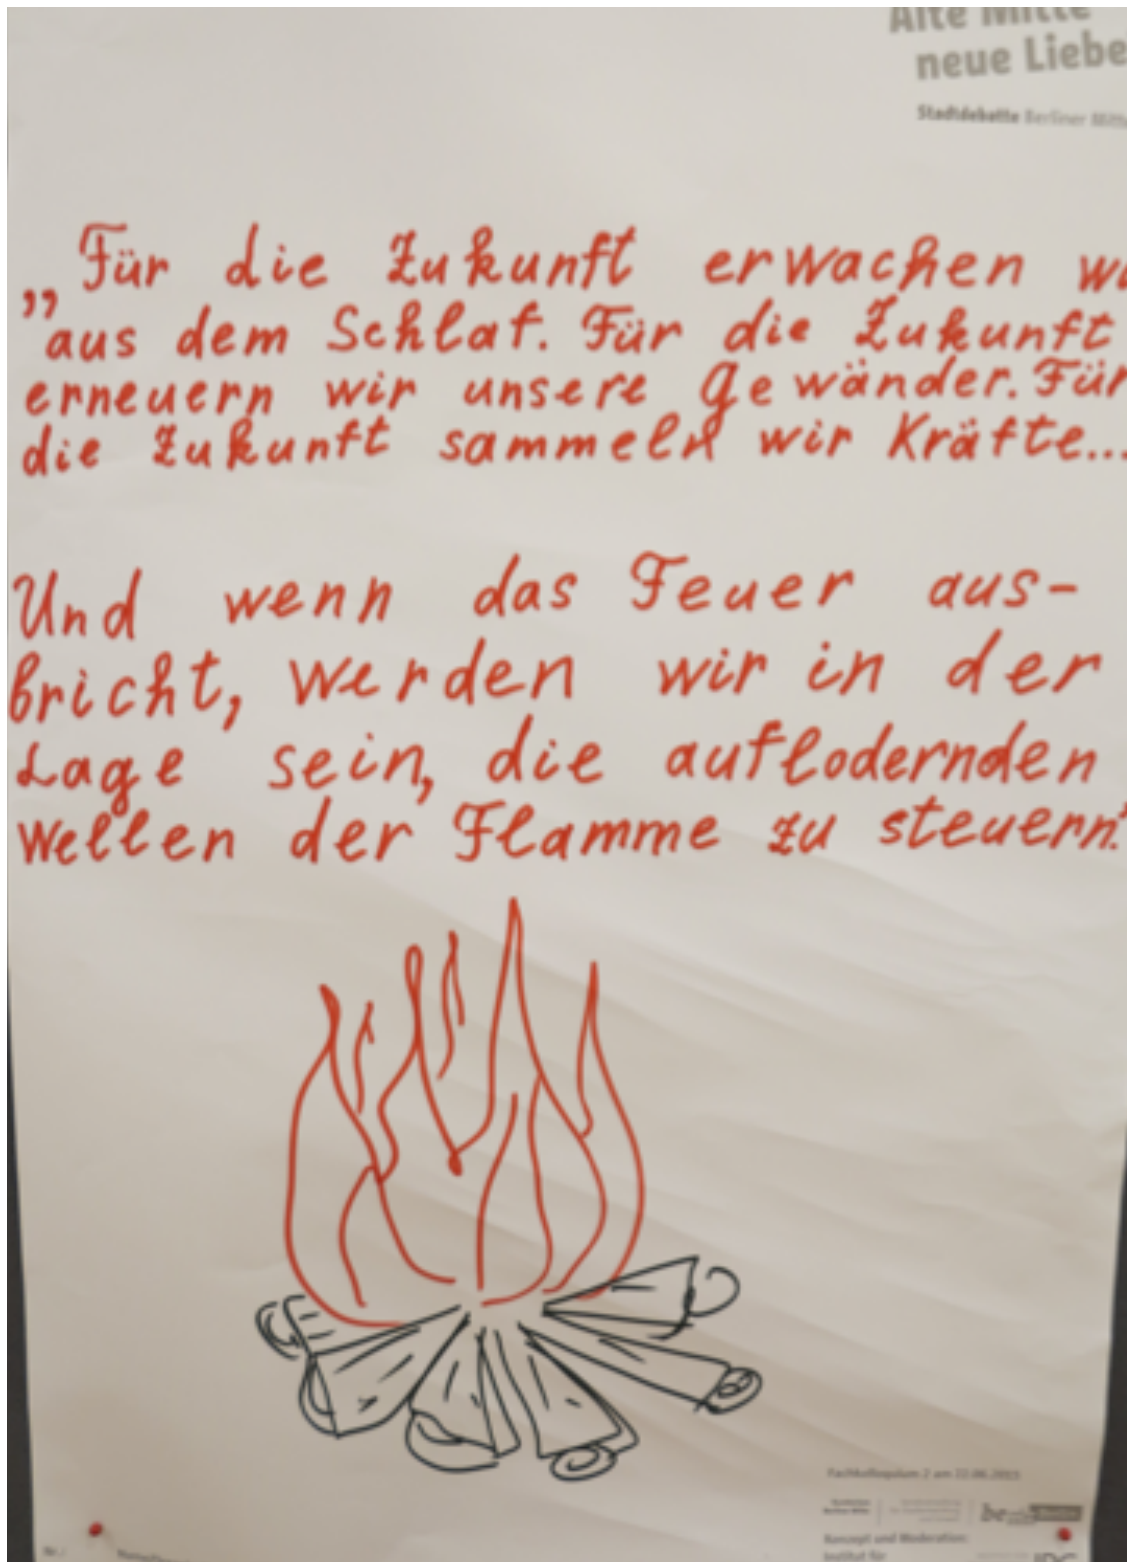 Alte Mitte
neue Liebe
Stadtdebatte Berliner Mitte
„Für die Zukunft erwachen
aus dem Schlaf. Für die Zukunft
erneuern wir unsere Gewänder. Für
die Zukunft sammeln wir Kräfte...
Und wenn das Feuer aus-
bricht, werden wir in der
Lage sein, die auflodernden
Wellen der Flamme zu steuern."
Fachkolloquium 2 am
Konzept und Moderation:
Institut für